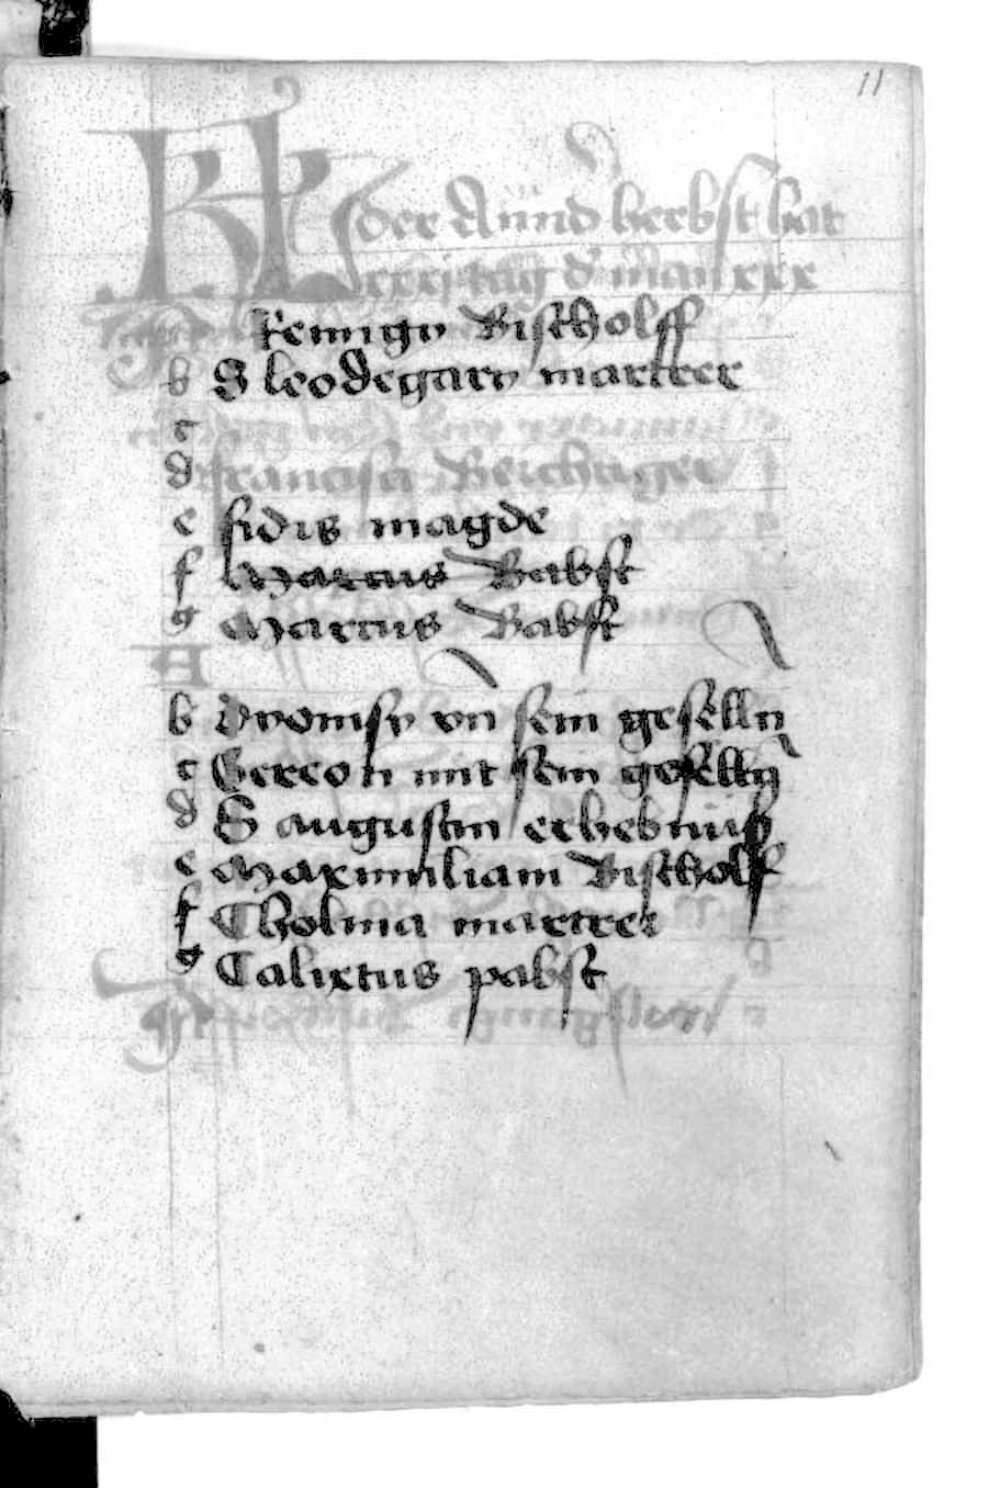 11
KL der Annd herbst hat
xxxj tag d' man xxx
Remigy Bischolff
b S leodegary martrer
c
d francisci Beichtiger
e fidis magde
f Marcus Babst
g Marcus Babst
A
b Dyonisy vn̄ sein geselln̄
c Gereon mit sein geselln̄
d S augustin erhebnuß
e Maximiliam Bischolf
f Cholma martrer
g Calixtus pabst